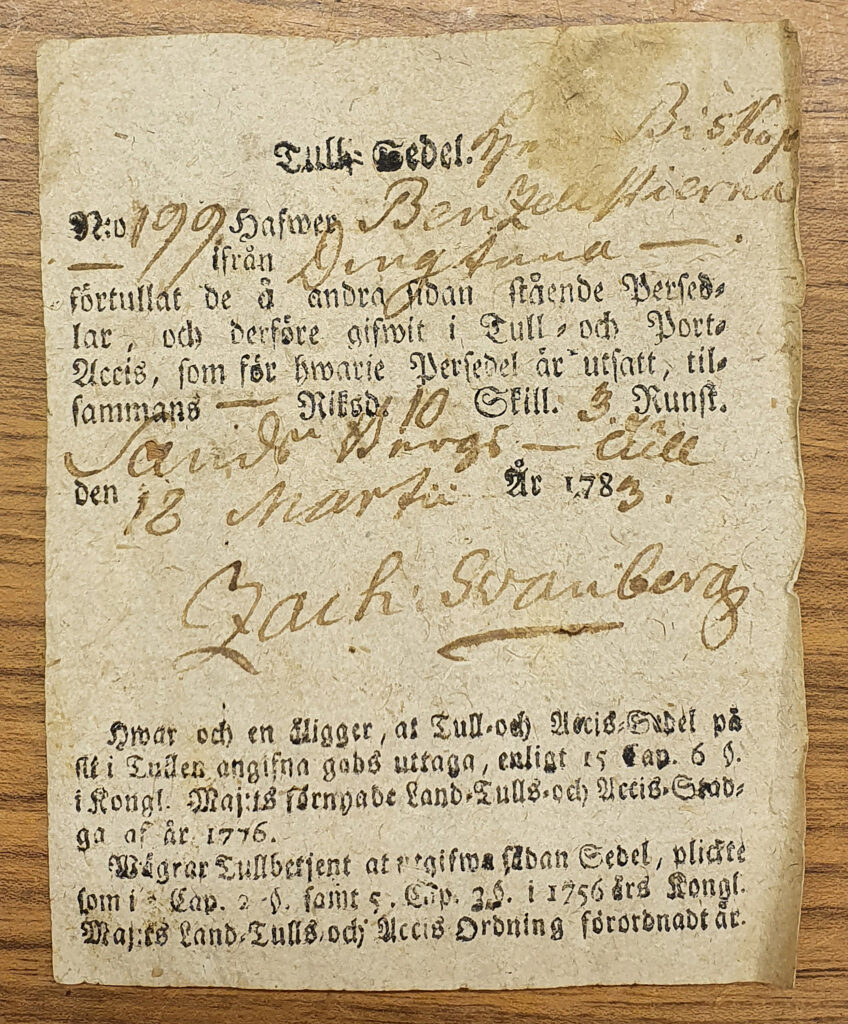 Tull-Sedel. Biskop
N:o 199 Hafwer Benzelstierna
— ifrån Dingtuna —
förtullat de å andra sidan stående Persed-
lar, och derföre gifwit i Tull- och Port-
Accis, som för hwarje Persedel är utsatt, til-
sammans — Riksd. 10 Skill. 3 Runst.
Tull
den 12 Martii År 1783.
Zach: Svanberg
Hwar och en åligger, at Tull-och Accis-Sedel på
sit i Tullen angifna gods uttaga, enligt 15 Cap. 6 §.
i Kongl. Maj:ts förnyade Land-Tulls-och Accis-Stad-
ga af år 1776.
Wägrar Tullbetjent at utgifwa sådan Sedel, plickte
som i Cap. 2 §. samt 5. Cap. 3 §. i 1756 års Kongl.
Maj:ts Land-Tulls-och Accis Ordning förordnadt är.